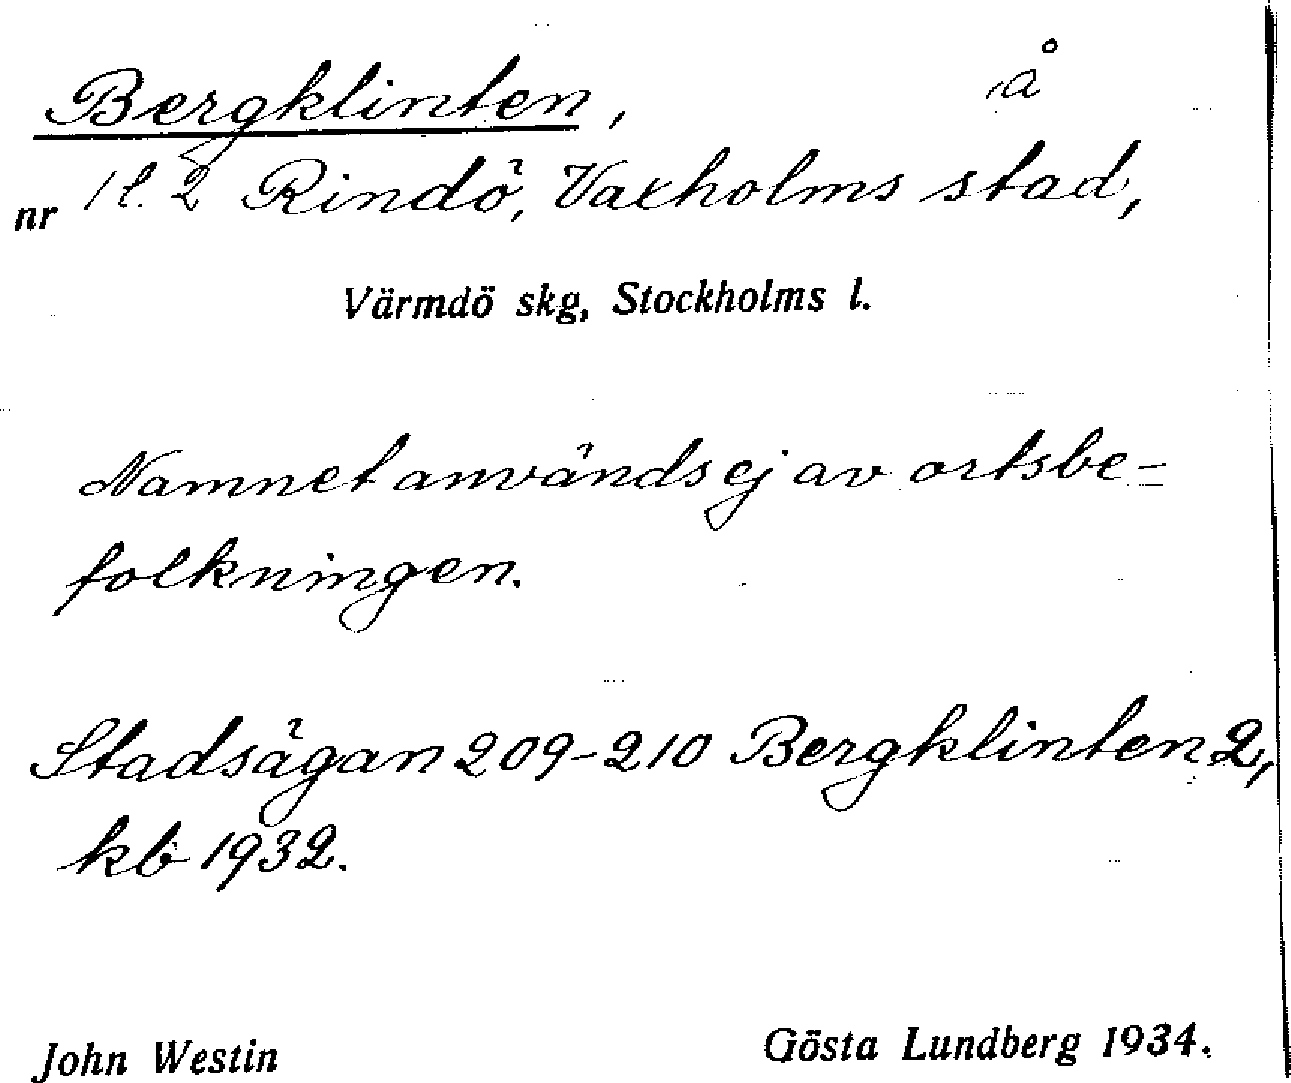 Bergklinten, å
nr 1 l. 2 Rindö, Vaxholms stad,
Värmdö skg, Stockholms l.
Namnet används ej av ortsbe-
folkningen.
Stadsägan 209-210 Bergklinten 2,
kb 1932.
John Westin Gösta Lundberg 1934.